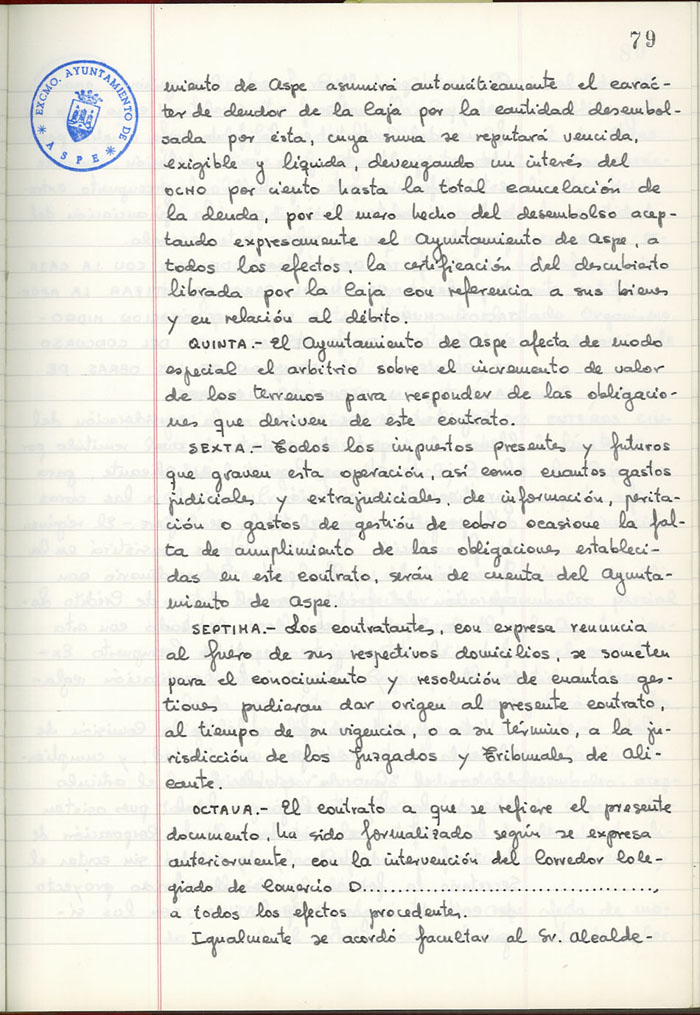 79
EXCMO. AYUNTAMIENTO DE
* ASPE *
miento de Aspe asumirá automáticamente el carác-
ter de deudor de la Caja por la cantidad desembol-
sada por ésta, cuya suma se reputará vencida,
exigible y líquida, devengando un interés del
OCHO por ciento hasta la total cancelación de
la deuda, por el mero hecho del desembolso acep-
tando expresamente el Ayuntamiento de Aspe, a
todos los efectos, la certificación del descubierto
librada por la Caja con referencia a sus bienes
y en relación al débito.
QUINTA.- El Ayuntamiento de Aspe afecta de modo
especial el arbitrio sobre el incremento de valor
de los terrenos para responder de las obligacio-
nes que deriven de este contrato.
SEXTA.- Todos los impuestos presentes y futuros
que graven esta operación, así como cuantos gastos
judiciales y extrajudiciales, de información, perita-
ción o gastos de gestión de cobro ocasione la fal-
ta de cumplimiento de las obligaciones estableci-
das en este contrato, serán de cuenta del Ayunta-
miento de Aspe.
SEPTIMA.- Los contratantes, con expresa renuncia
al fuero de sus respectivos domicilios, se someten
para el conocimiento y resolución de cuantas ges-
tiones pudieran dar origen al presente contrato,
al tiempo de su vigencia, o a su término, a la ju-
risdicción de los Juzgados y Tribunales de Ali-
cante.
OCTAVA.- El contrato a que se refiere el presente
documento, ha sido formalizado según se expresa
anteriormente, con la intervención del Corredor Cole-
giado de Comercio D......................................,
a todos los efectos procedentes.
Igualmente se acordó facultar al Sr. Alcalde-